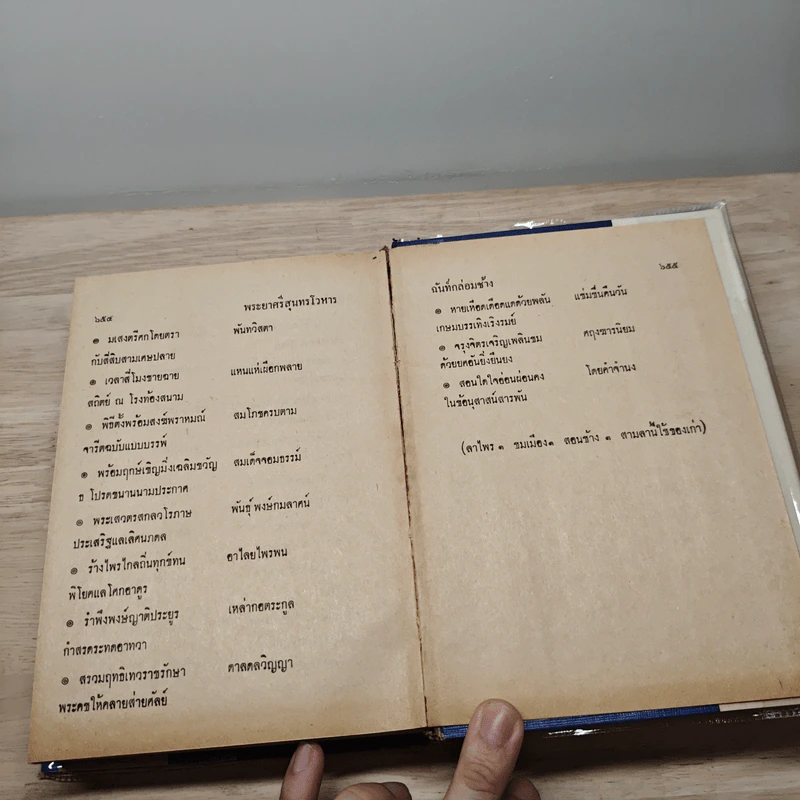 ๖๕๔ พระยาศรีสุนทรโวหาร
๏ มเสงตรีศกโดยตรา พันทวิสตา
กับสี่สิบสามเศษปลาย
๏ เวลาสี่โมงชายฉาย แหนแห่เผือกพลาย
สถิตย์ ณ โรงท้องสนาม
๏ พิธีตั้งพร้อมสงฆ์พราหมณ์ สมโภชครบตาม
จารีตฉบับแบบบรรพ์
๏ พร้อมฤกษ์เชิญมิ่งเฉลิมขวัญ สมเด็จจอมธรรม์
ธ โปรดขนานนามประกาศ
๏ พระเสวตรสกลวโรภาษ พันธุ์ พงษ์กมลาศน์
ประเสริฐแลเลิศนภดล
๏ ร้างไพรไกลถิ่นทุกข์ทน อาไลยไพรพน
พิโยคแลโศกอาดูร
๏ รำพึงพงษ์ญาติประยูร เหล่ากอตระกูล
กำสรดระทดอาทวา
๏ สรวมฤทธิเทวราชรักษา ดาลดลวิญญา
พระคชให้คลายส่ายศัลย์
ฉันท์กล่อมช้าง ๖๕๕
๏ หายเหือดเดือดแดด้วยพลัน แช่มชื่นคืนวัน
เกษมบรรเทิงเริงรมย์
๏ จรุงจิตรเจริญเพลินชม ศฤงฆารนิยม
ด้วยยศอันยิ่งยืนยง
๏ สอนใดใจอ่อนผ่อนคง โดยคำจำนง
ในข้อนุสาสน์สารพัน
(ลาไพร ๑ ชมเมือง๑ สอนช้าง ๑ สามลานี้ใช้ของเก่า)